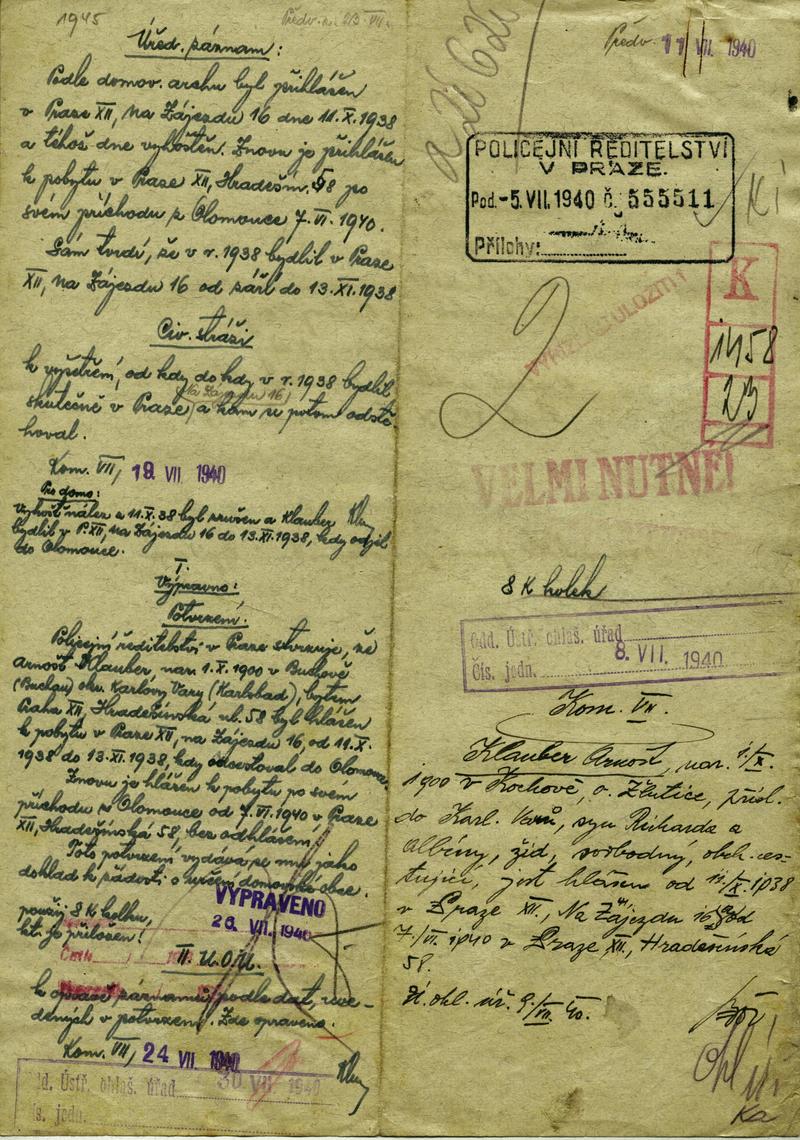 1945
Předv. n. 23 VII.
Úřed. záznam:
Podle domov. archu byl přihlášen
v Praze XII, na Zájezdu 16 dne 11.X.1938
a téhož dne vyhoštěn. Znovu je přihlášen
k pobytu v Praze XII, Hradešín. 58 po
svém příchodu z Olomouce 7.VI.1940.
Sám tvrdí, že v r. 1938 bydlil v Praze
XII, na Zájezdu 16 od září do 13.XI.1938
Civ. stráži
k vyšetření, od kdy do kdy v r. 1938 bydlil
(Na Zájezdu 16)
skutečně v Praze a kam se potom odstě-
hoval.
Kom. VII, 19 VII 1940
Pro domo:
Vyhošť. nález z 11.X.38 byl zrušen a Klauber
bydlil v P.XII, na Zájezdu 16 do 13.XI.1938, kdy odjel
do Olomouce.
I.
Výpravno:
Potvrzení.
Policejní ředitelství v Praze stvrzuje, že
Arnošt Klauber, nar. 1.X.1900 v Buchově
(Buchau) okr. Karlovy Vary (Karlsbad), bytem
Praha XII, Hradešínská ul. 58 byl hlášen
k pobytu v Praze XII, na Zájezdu 16, od 11.X.
1938 do 13.XI.1938, kdy odcestoval do Olomouce.
Znovu je hlášen k pobytu po svém
příchodu z Olomouce od 7.VI.1940 v Praze
XII, Hradešínská 58, bez odhlášení.
Toto potvrzení vydává se mu jako
doklad k žádosti o určení domovské obce.
použij 8 K kolku,
kt. je přiložen!
VYPRAVENO
26. VII. 1940
II. U.O.U.
k opravě záznamů podle dat, uve-
dených v potvrzení. Zde opraveno.
Kom. VII, 24 VII 1940
Odd. Ústř. ohlaš. úřad 30 VII 1940
Čís. jedn.
Předv. 11 VII. 1940
POLICEJNÍ ŘEDITELSTVÍ
V PRAZE.
Pod. -5. VII. 1940 č. 555511
Přílohy:
K
1458
23
2
VELMI NUTNÉ!
8 K kolek
Odd. Ústř. ohlaš. úřad
8. VII. 1940
Čís. jedn.
Kom. VII.
Klauber Arnošt, nar. 1/X.
1900 v Kochově, o. Žlutice, přísl.
do Karl. Varů, syn Richarda a
Albíny, žid, svobodný, obch. ces-
tující, jest hlášen od 11/X. 1938
v Praze XII., Na Zájezdu 16 od
7/VI. 1940 v Praze XII., Hradešínská
58.
Ú. ohl. úř. 9/VII. 40.